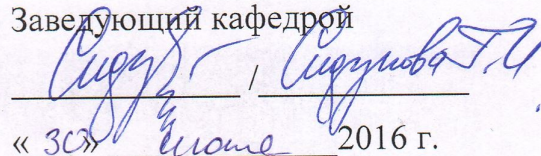 Заведующий кафедрой
/ Сидунова Г.И
« 30 » 2016 г.